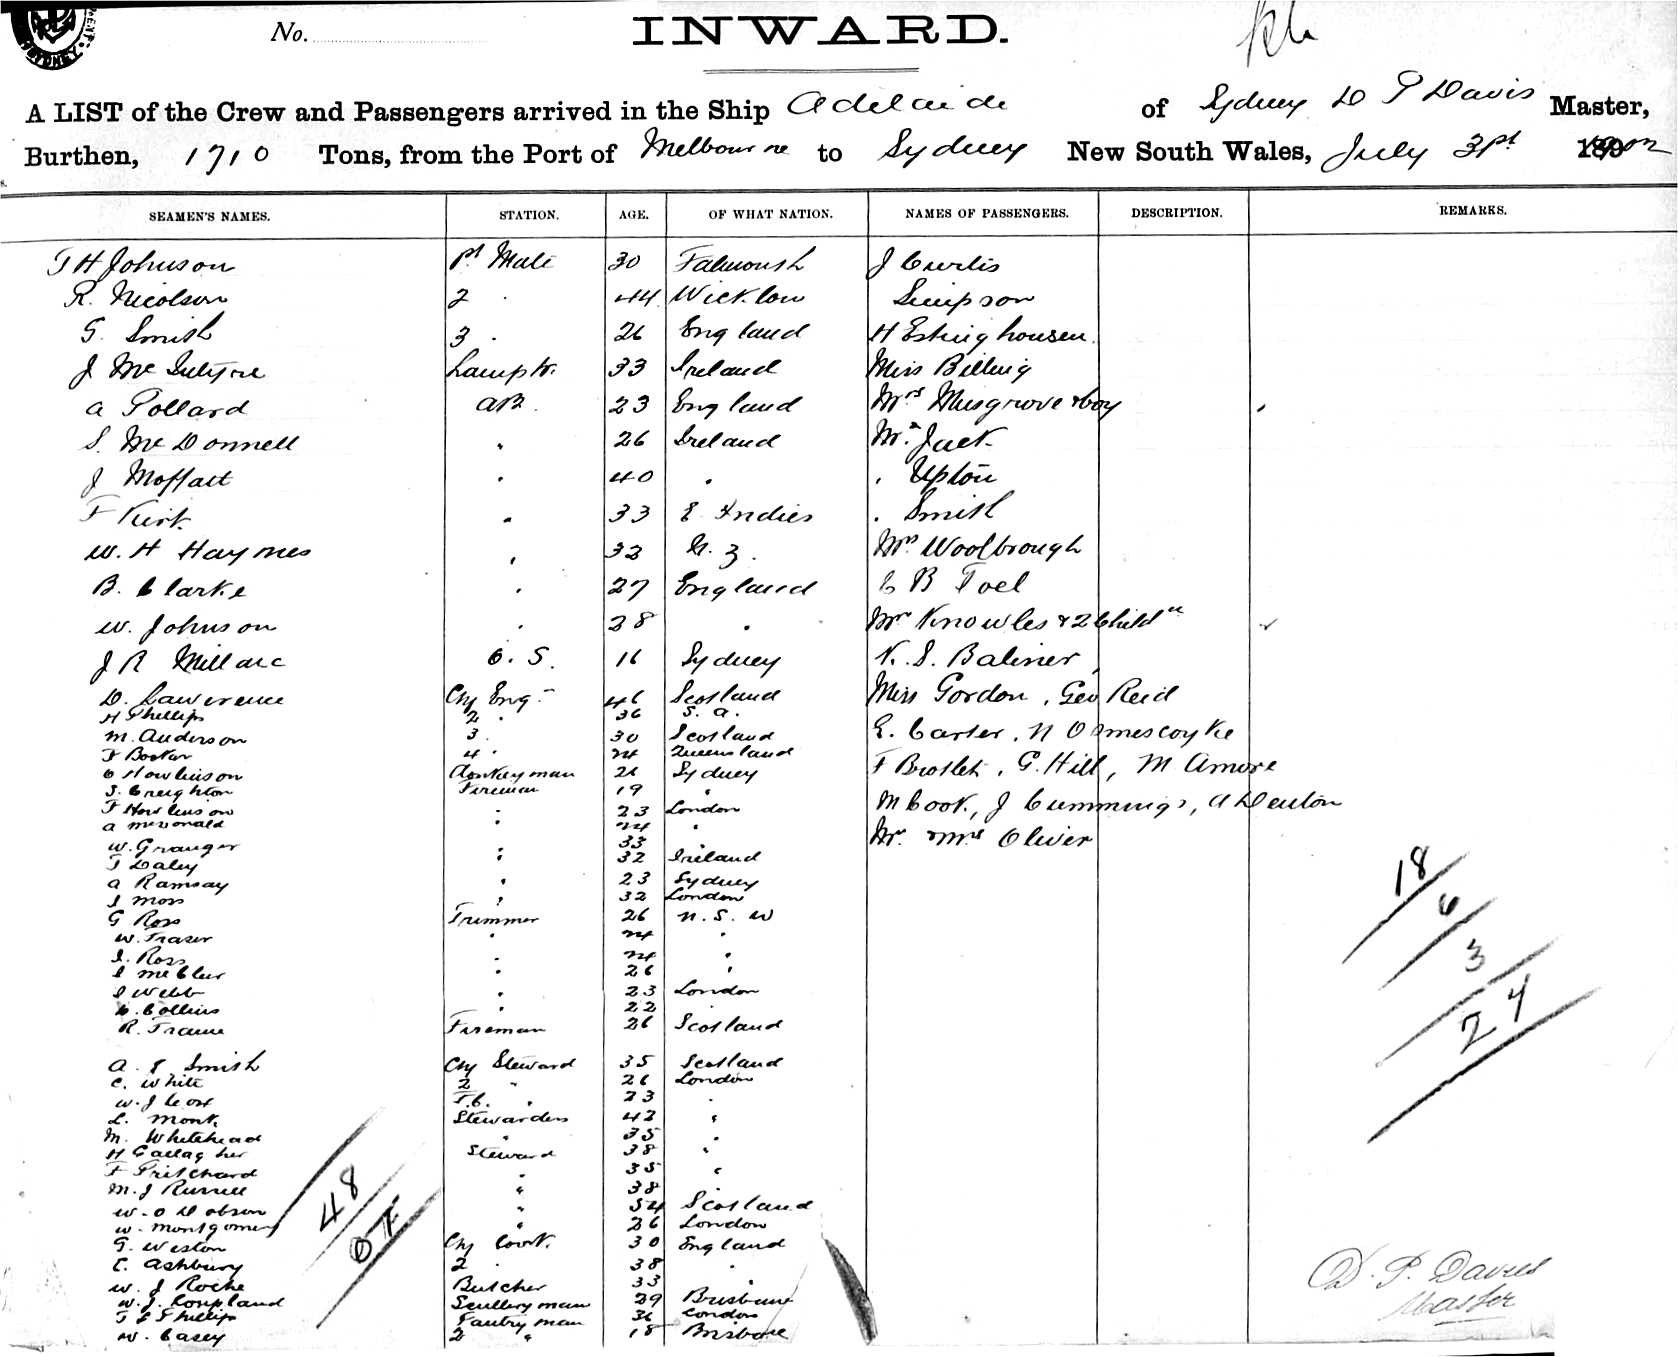 SYDNEY
No.
INWARD.
A LIST of the Crew and Passengers arrived in the Ship Adelaide of Sydney D P Davis Master,
Burthen, 1710 Tons, from the Port of Melbourne to Sydney New South Wales, July 31st
SEAMEN'S NAMES. STATION. AGE. OF WHAT NATION. NAMES OF PASSENGERS. DESCRIPTION. REMARKS.
T H Johnson 1st Mate 30 Falmouth J Curtis
R. Nicolson 2 " 44 Wicklow Simpson
G. Smith 3 " 26 England H Estinghousen
J McIntyre Lamptr. 33 Ireland Miss Billing
A Pollard AB. 23 England Mrs Musgrove & boy
S. McDonnell " 26 Ireland Mr Jack
J Moffatt " 40 " " Upton
F Kirk " 33 E Indies " Smith
W. H Haymes " 32 N. Z. Mrs Woolbrough
B. Clarke " 27 England C B Toel
W. Johnson " 28 " Mrs Knowles & 2 Childn
J R Millar O. S. 16 Sydney N. S. Baliner
D. Lawrence Chf Engr 46 Scotland Miss Gordon, Geo Reid
H Phillips 2 " 36 S. A.
M. Anderson 3 " 30 Scotland E. Carter, N Ormescoyke
F Booker 4 " 24 Queensland
C Howlinson Donkeyman 26 Sydney F Brotlet, G. Hill, M Amore
S. Creighton Fireman 19 "
F Howlinson " 23 London M Cook, J Cummings, A Denton
A McDonald " 24 "
W. Granger " 33 " Mr & Mrs Oliver
T Daley " 32 Ireland
A Ramsay " 23 Sydney
J Moss " 32 London
G Ross Trimmer 26 N. S. W
W. Fraser " 24 "
J. Ross " 24 "
J McClur " 26 "
J Webb " 23 London
C. Collins " 22 "
R. Fraine Fireman 26 Scotland
A. E Smith Chf Steward 35 Scotland
C. White 2 " 26 London
W. J Cox F.C. " 23 "
L. Monk Stewardess 42 "
M. Whitehead " 35 "
H Gallagher Steward 38 "
F Pritchard " 35 "
M. J Russell " 38 "
W. O Dobson " 54 Scotland
W. Montgomery " 26 London
G. Weston Chf Cook 30 England
C. Ashbury 2 " 38 "
W. J Roche Butcher 33 "
W. J. Coupland Scullery man 29 Brisbane
T E Phillips Pantry man 36 London
W. Casey 2 " 18 Brisbane
18
6
3
24
48
D. P. Davies
Master